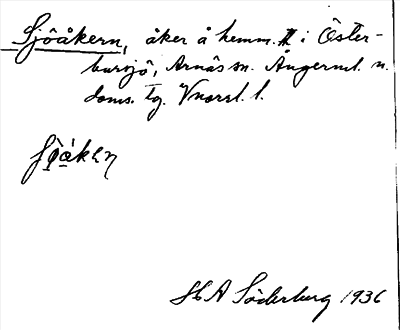 Sjöåkern, åker å hemm. i Öster-
bursjö, Arnäs sn. Ångerml. n.
doms. tg. Vnorrl. l.
H A Söderberg 1936